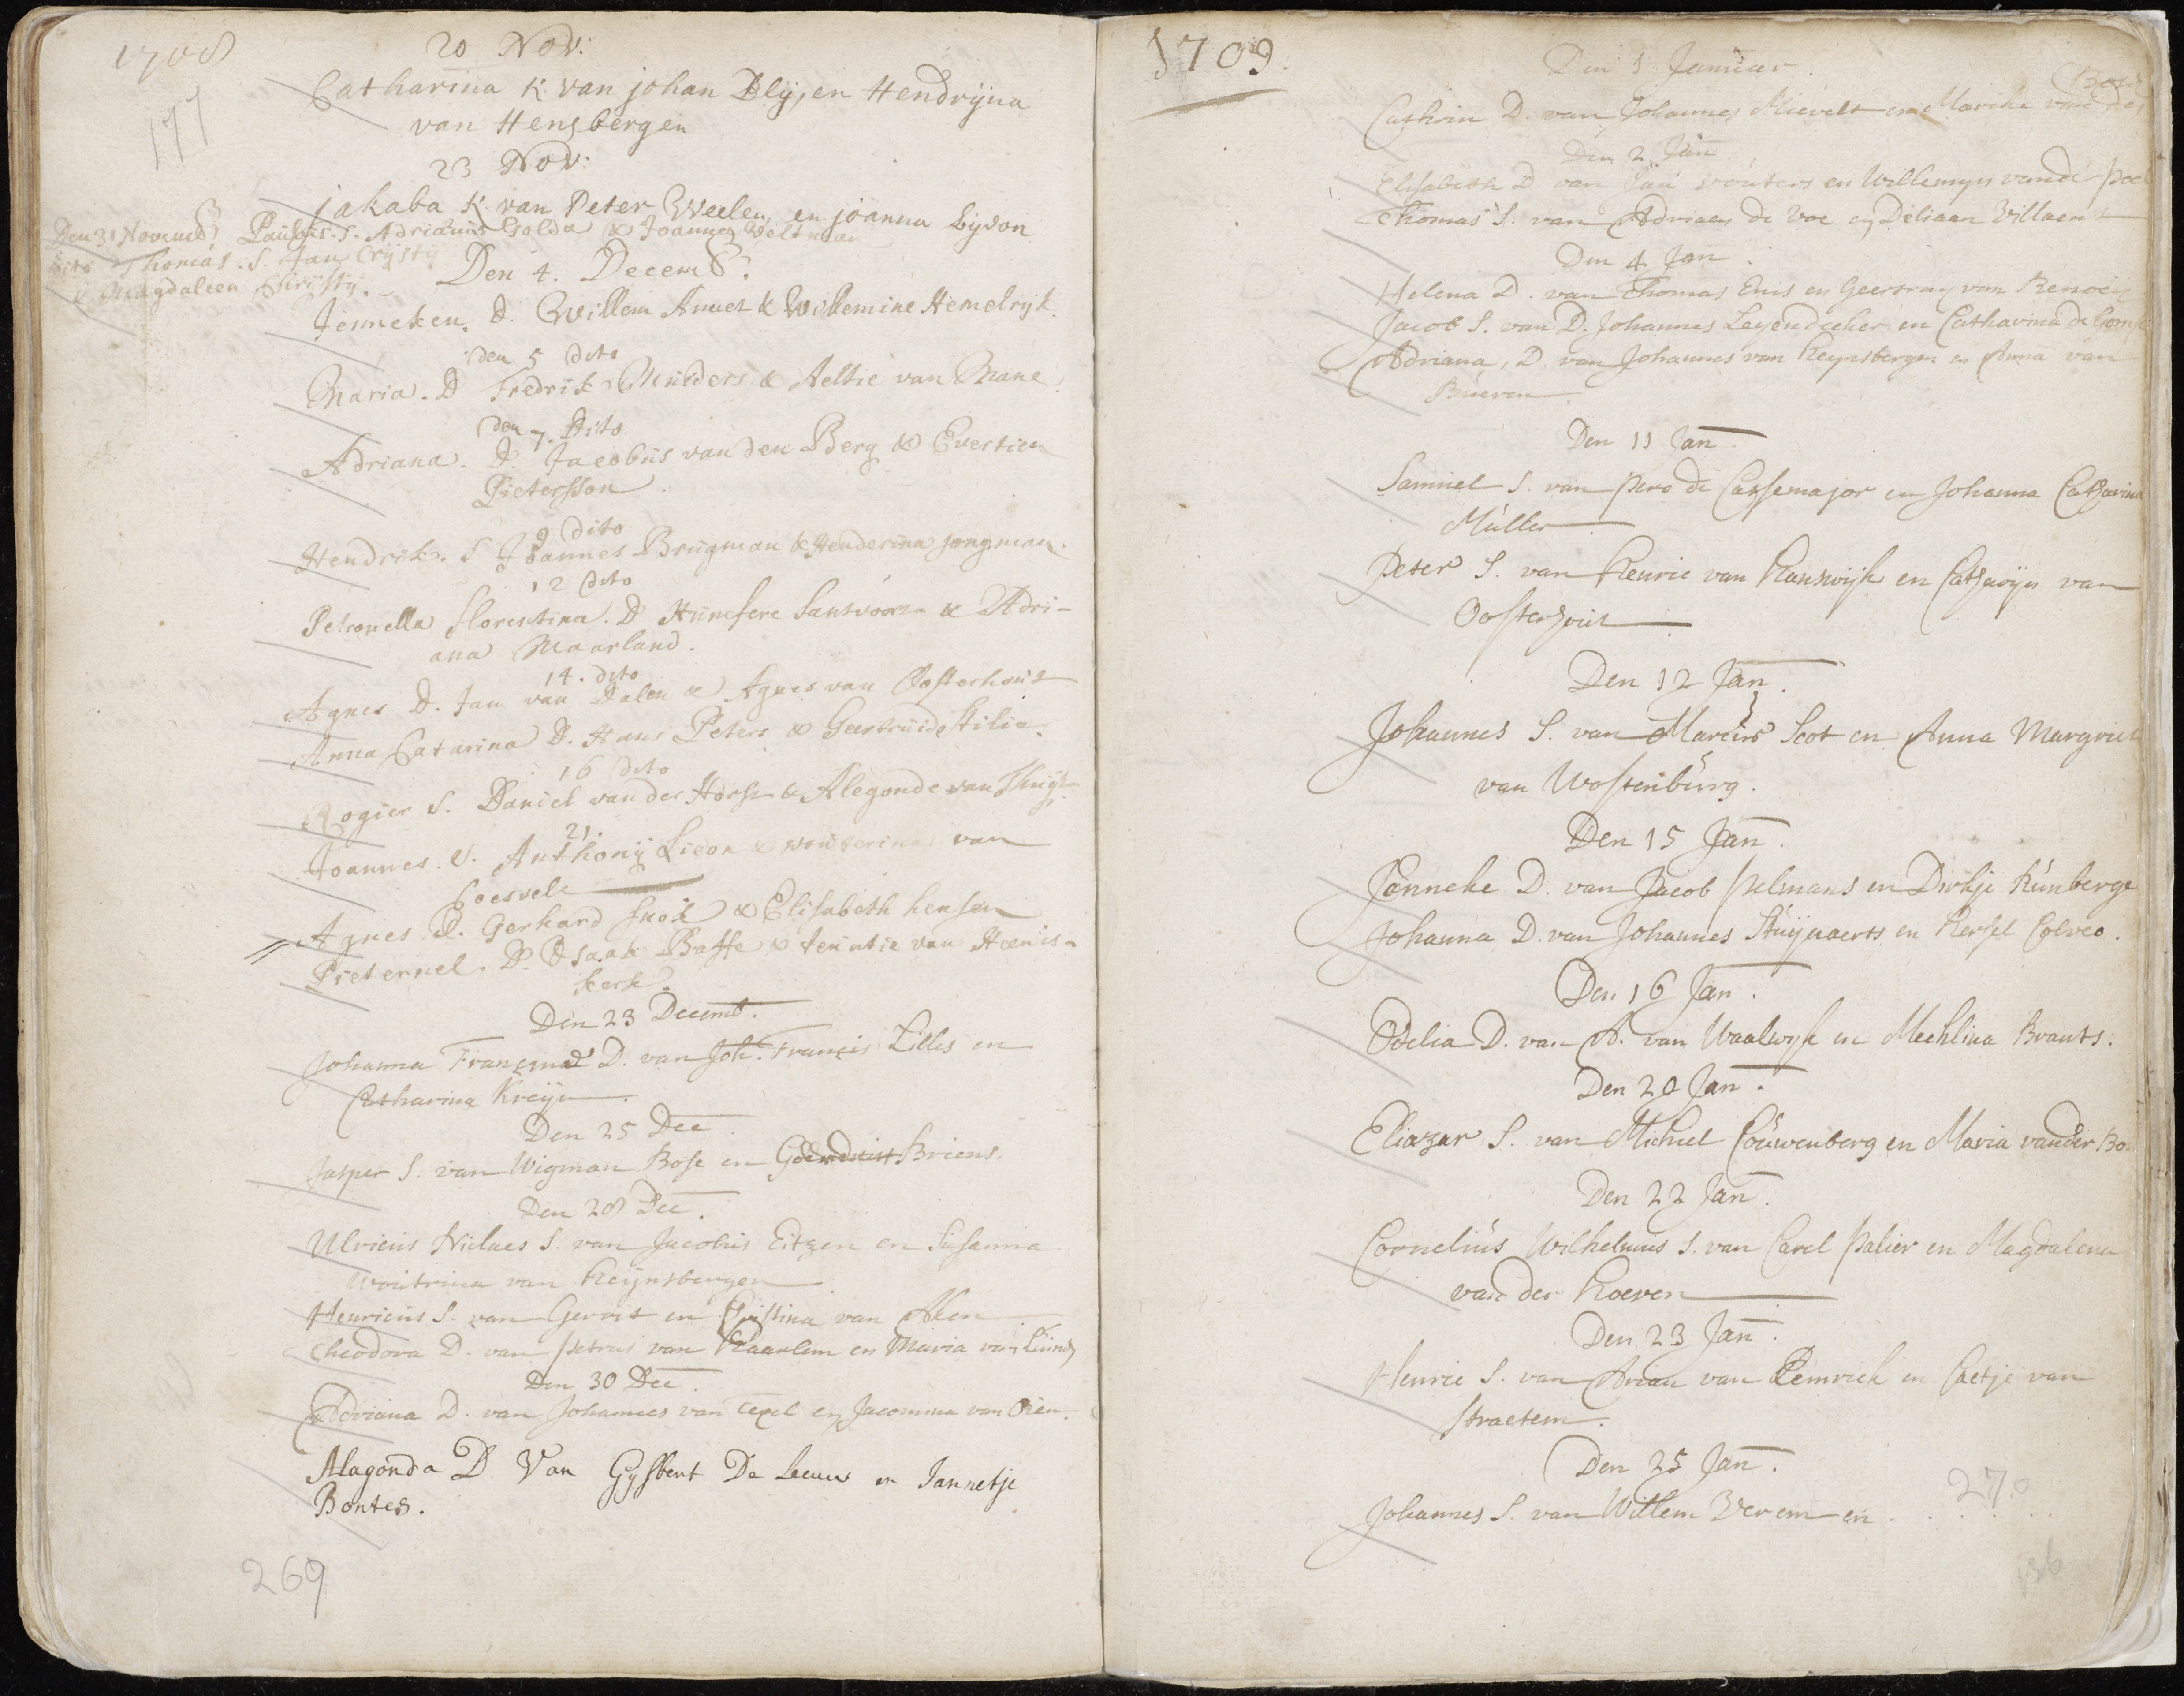 1708
177
20 Nov:
Catharina K van johan Blij, en Hendrijna
van Hengbergen
23 Nov:
jakaba K van Peter Weelen, en joanna Lijdon
Den 31 Novemb. Paulus. S. Adrianus Golda & Joanna Veltman
dito Thomas. S. Jan Crijsty
& Magdaleen Christy.
Den 4. Decemb:
Jenneken. D. Willem & Willemine Hemelrijk.
den 5 dito
Maria. D Fredrik Muiders & Aeltie van Mane
den 7. Dito
Adriana. D. Jacobus van den Berg & Evertien
Pietersson.
9 dito
Hendrik. S Joannes Brugman & Henderina jongman.
12 dito
Petronella Florentina. D Santvoort & Adri-
ana Maarland.
14. dito
Agnes D. Jan van Dalen & Agnes van Oosterhout
Anna Catarina D. Hans Peters & Geertruide Stilia.
16 dito
Rogier S. Daniel van der Horst & Alegonde van
21.
Joannes. S. Anthonij & wouterina van
Coesvelt
Agnes. D. Gerhard Snoek & Elisabeth hensen
Pieternel. D. Isaak Basse & van Heems-
kerk.
Den 23 Decemb.
Johanna Francina D. van Joh. Francis Zilles en
Catharina Kreijn.
Den 25 Dec
Jasper S. van Wigman Bose en Briens.
Den 28 Dec.
Ulricus Niclaes S. van Jacobus Eitzen en Susanna
Woutrina van Reijnsbergen
Henricus S. van Gerrit en Christina van Aken
Theodora D. van Petrus van Haarlem en Maria van
Den 30 Dec.
Adriana D. van Johannes van Texel en Jacomina van Oien.
Alagonda D Van Gysbert De Leeuw en Jannetje
Bontes.
269
1709.
Den 1 Januar.
Cathrin D. van Johannes Mierelt en Marike van der
Den 2 Jan
Elisabeth D van Jan wouters en Willemyn vande
Thomas S. van Adriaen de Voe en Diliaan Villaen
Den 4 Jan.
Helena D. van Thomas Enis en Geertruy van
Jacob S. van D. Johannes Leyendecker en Catharina de
Adriana, D. van Johannes van Reynsbergen en Anna van
Bueren.
Den 11 Jan.
Samuel S. van Pero de Cassemajor en Johanna Catharina
Müller
Peter S. van Henric van Ranswijk en Catharyn van
Oosterhout
Den 12 Jan.
Johannes S. van Marcus Scot en Anna Margriet
van Wostenburg.
Den 15 Jan.
Janneke D. van Jacob Pelmans en Dirkje Kunberge
Johanna D. van Johannes Stuijvaerts en Hersel Colveo.
Den 16 Jan.
Odelia D. van A. van Waalwyk en Mechlina Brants.
Den 20 Jan.
Eliazar S. van Michiel Couwenberg en Maria vander
Den 22 Jan.
Cornelius Wilhelmus S. van Carel Palier en Magdalena
van der Hoeven
Den 23 Jan.
Henric S. van Arian van Remrich en Caetje van
Straeten.
Den 25 Jan.
Johannes S. van Willem Verem en . . . . .
270